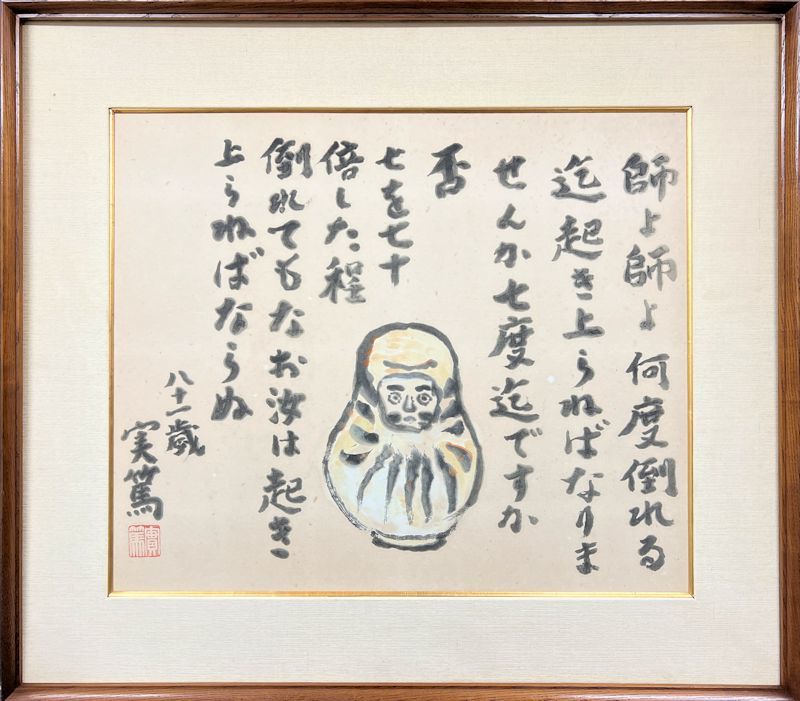 師よ師よ何度倒れる
迄起き上らねばなりま
せんか七度迄ですか
否
七を七十
倍した程
倒れてもなお汝は起き
上らねばならぬ
八十一歳
実篤
實篤